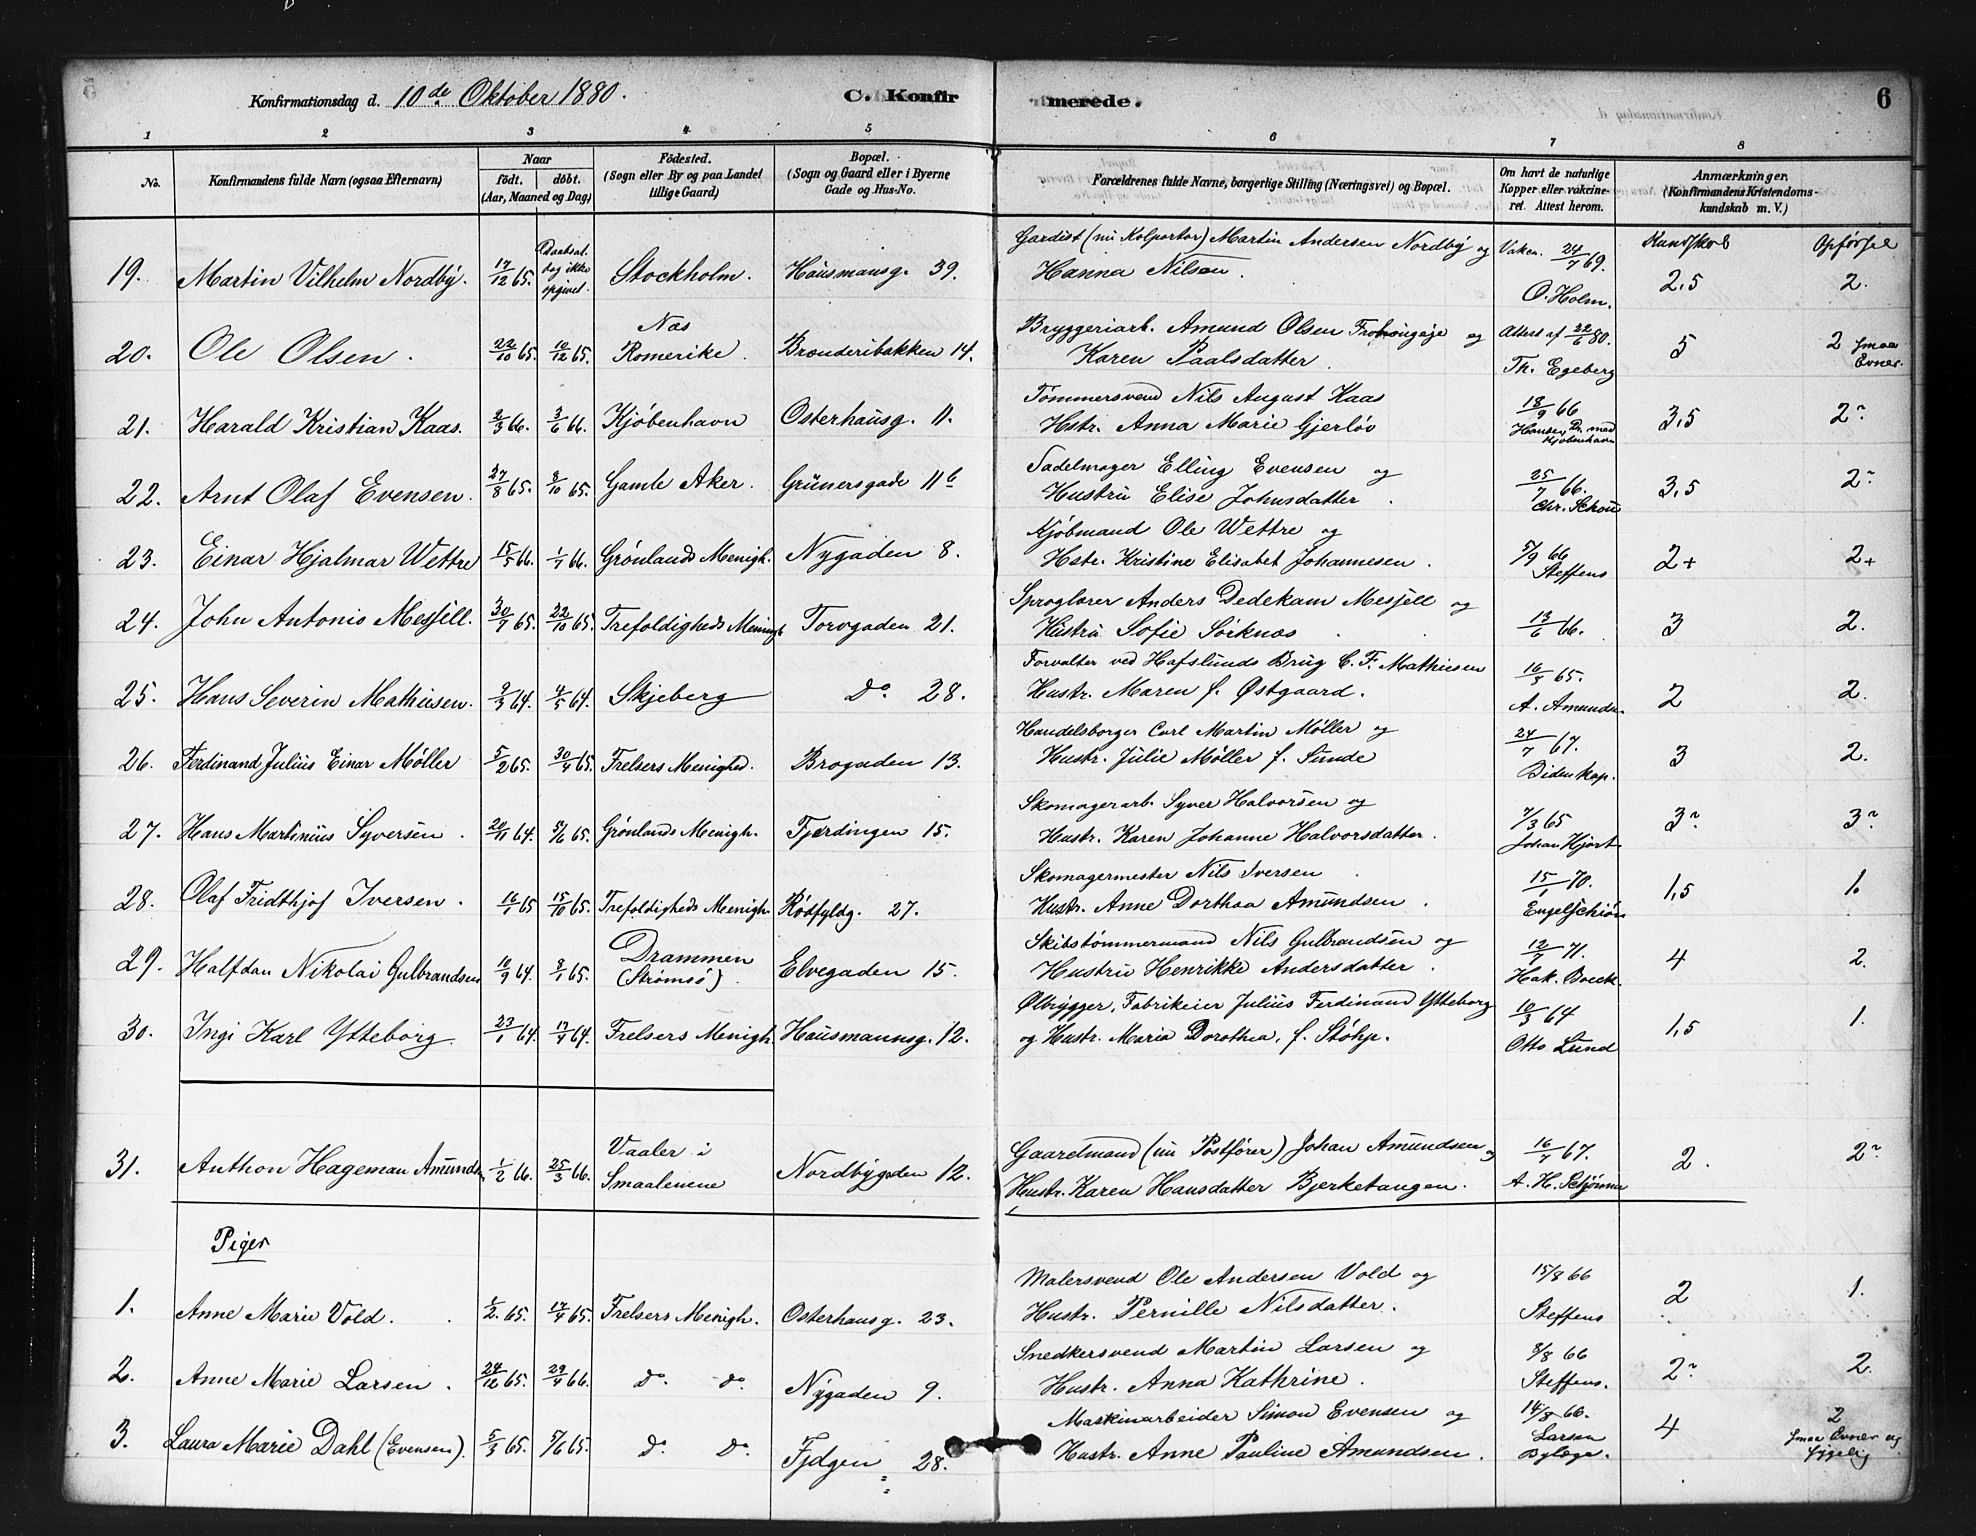 Konfirmationsdag d. 10de Oktober 1880. C. Konfirmerede. 6
1 2 3 4 5 6 7 8
No. Konfirmandens fulde Navn (ogsaa Efternavn) Naar födt. döbt. (Aar, Maaned og Dag) Födested. (Sogn eller By og paa Landet tillige Gaard) Bopæl. (Sogn og Gaard eller i Byerne Gade og Hus-No. Forældrenes fulde Navne, borgerlige Stilling (Næringsvei) og Bopæl. Om havt de naturlige Kopper eller vakcineret. Attest herom. Anmærkninger. (Konfirmandens Kristendomskundskab m. V.)
Kundskab Opførsel
19. Martin Vilhelm Nordby. 17/12 65. Daabsdag ikke opgivet. Stockholm. Hausmansg. 39. Gardist (nu Kolportør) Martin Andersen Nordby og Hanna Nilsen. Vakcn. 24/7 69. O. Holm. 2,5 2.
20. Ole Olsen. 22/10 65. 10/12 65. Næs Romerike. Brænderibakken 14. Bryggeriarb. Amund Olsen og Karen Paalsdatter. Attest af 22/6 80. Th. Egeberg 5 2 smaa Evner.
21. Harald Kristian Kaas. 2/3 66. 3/6 66. Kjøbenhavn Osterhausg. 11. Tømmersvend Nils August Kaas Hstr. Anna Marie Gjerløv 18/9 66 Hansen, Dr. med Kjøbenhavn 3,5 2
22. Arnt Olaf Evensen. 27/8 65. 8/10 65. Gamle Aker. Grünersgade 11b Sadelmager Elling Evensen og Hustru Elise Johnsdatter. 25/7 66. Chr. Schou 3,5 2
23. Einar Hjalmar Wettre 15/5 66. 1/7 66. Grønlands Menigh. Nygaden 8. Kjøbmand Ole Wettre og Hstr. Kristine Elisabet Johannesen. 5/9 66 Steffens 2+ 2+
24. John Antonio Mesjell. 30/7 65. 22/10 65. Trefoldigheds Menigh Torvgaden 21. Sproglærer Anders Dedekam Mesjell og Hustru Sofie Sørknæs 13/6 66. 3 2.
25. Hans Severin Mathiesen. 2/3 64. 4/5 64. Skjeberg Do 28. Forvalter ved Hafslunds Brug C. F. Mathiesen Hustr. Maren f. Østgaard. 16/5 65. A. Amunds. 2 2.
26. Ferdinand Julius Einar Møller 5/2 65. 30/4 65. Frelsers Menighed. Brogaden 13. Handelsborger Carl Martin Møller og Hustr. Julie Møller f. Sunde 24/7 67. Bidenkap. 3 2.
27. Hans Martinius Syversen. 20/11 64. 5/6 65. Grønlands Menigh. Fjerdingen 15. Skomagerarb. Syver Halvorsen og Hustr. Karen Johanne Halvorsdatter. 7/3 65 Johan Hjort 3 3
28. Olaf Fridthjof Iversen. 16/1 65 15/10 65. Trefoldigheds Menigh. Rødfyldg. 27. Skomagermester Nils Iversen Hustr. Anne Dorthea Amundsen. 15/1 70. Engelschiøn 1,5 1.
29. Halfdan Nikolai Gulbrandsen 10/9 64. 8/1 65. Drammen (Strømsø). Elvegaden 15. Skibstømmermand Nils Gulbrandsen og Hustru Henrikke Andersdatter. 12/7 71. Hak. Boeck. 4 2.
30. Ingi Karl Ytteborg. 23/1 64. 17/4 64. Frelsers Menigh. Hausmannsg. 12. Ølbrygger, Fabrikeier Julius Ferdinand Ytteborg og Hustr. Maria Dorothea, f. Støhp. 10/3 64 Otto Lund 1,5 1.
31. Anthon Hageman Amunds. 1/2 66. 25/3 66. Vaaler i Smaalenene Nordbygaden 12. Gaardmand (nu Postfører) Johan Amundsen og Hustr. Karen Hansdatter Bjerketangen. 16/7 67. 2. 2
Piger
1. Anne Marie Vold. 1/2. 65. 17/4 65. Frelsers Menigh. Osterhausg. 23. Malersvend Ole Andersen Vold og Hustr. Pernille Nilsdatter. 15/8 66 Steffens 2 1.
2. Anne Marie Larsen. 24/12 65. 29/4 66. do. do. Nygaden 9. Snedkersvend Martin Larsen og Hustr. Anna Kathrine. 8/8 66 Steffens. 2 2.
3. Laura Marie Dahl (Evensen). 5/3 65. 5/6 65. do. do. Fjdgen 28. Maskinarbeider Simon Evensen og Hustr. Anne Pauline Amundsen. 14/8 66. Larsen Bylæge. 4 2 smaa Evner og sygelig